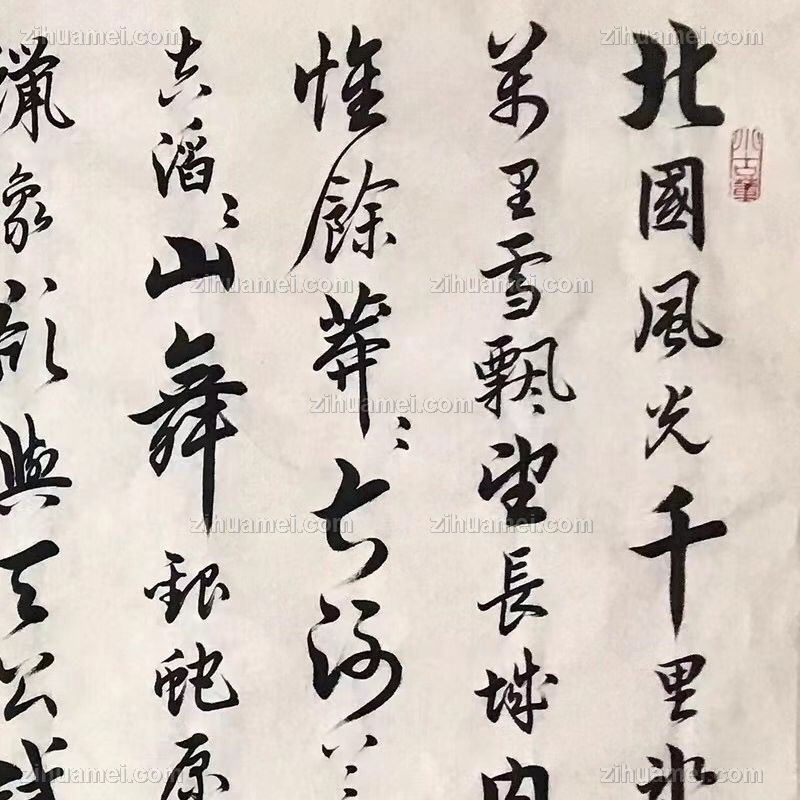 北國風光千里冰
萬里雪飄望長城内
惟餘莽〻大河
失滔〻山舞銀蛇原
象欲與天公試
小古董
zihuamei.com
zihuamei.com
zihuamei.com
zihuamei.com
zihuamei.com
zihuamei.com
zihuamei.com
zihuamei.com
zihuamei.com